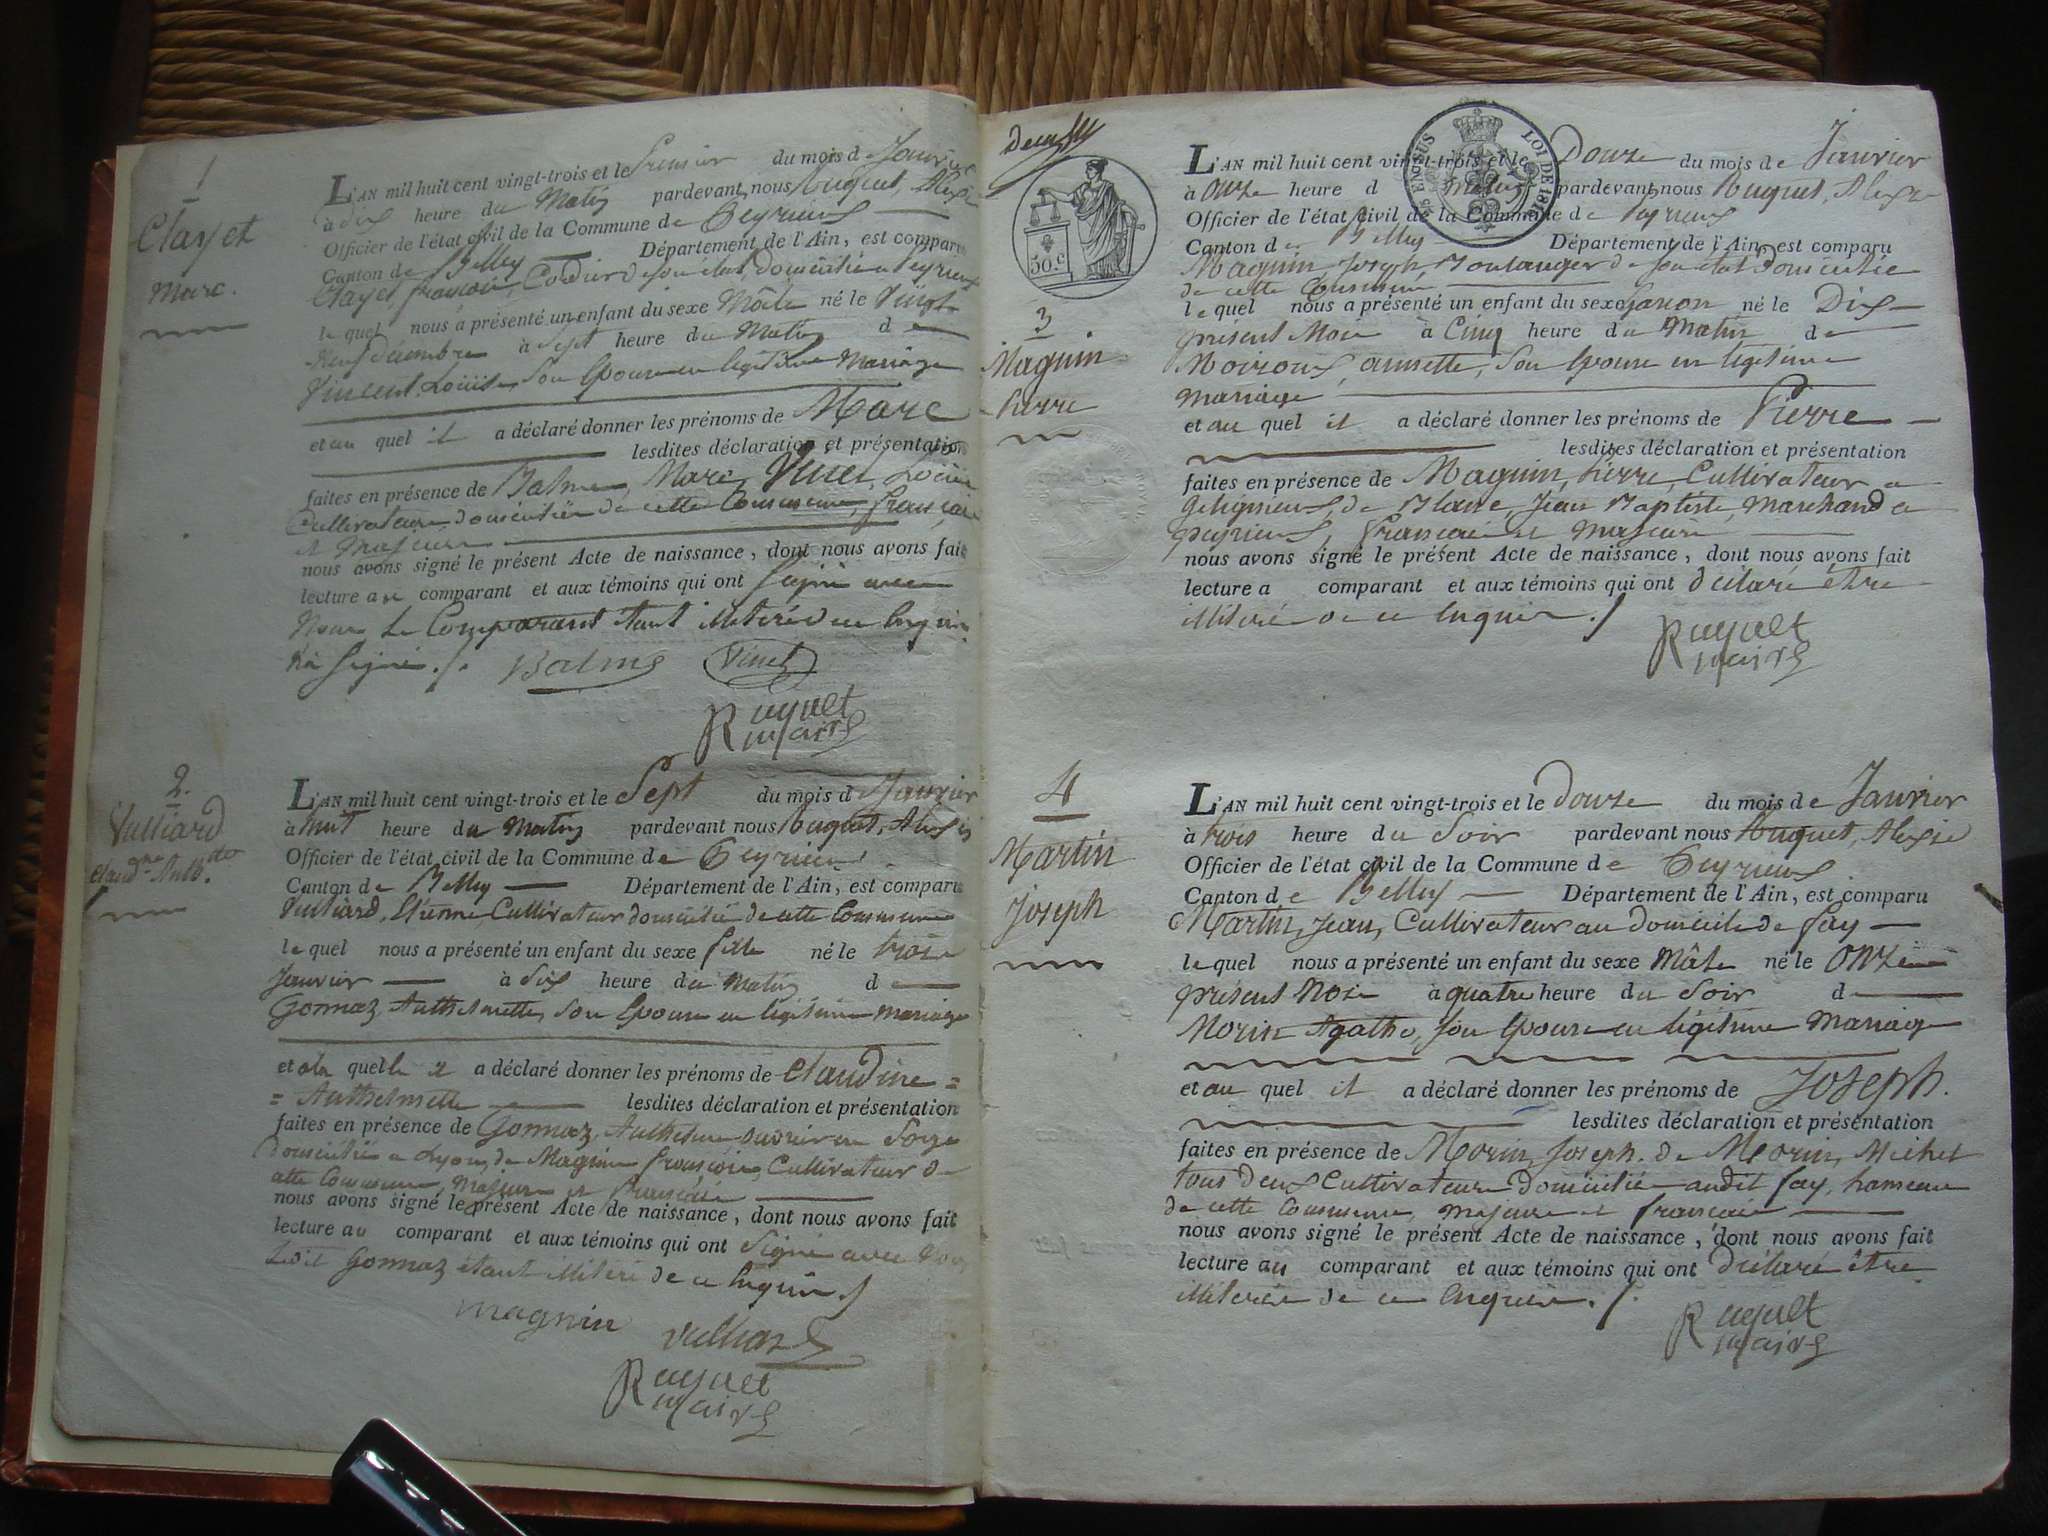 1
Clayet
Marc.
L'AN mil huit cent vingt-trois et le Premier du mois de Janvier
à dix heure du Matin pardevant nous Ruquet, Alexis
Officier de l'état civil de la Commune de Peyrieux
Canton de Belley Département de l'Ain, est comparu
Clayet, françois, Cordier de son état domicilié a Peyrieux
le quel nous a présenté un enfant du sexe Mâle né le Vingt
Neuf décembre à Sept heure du Matin d
Vincent Louise, son Epouse en légitime Mariage
et au quel il a déclaré donner les prénoms de Marc
lesdites déclaration et présentation
faites en présence de Balme, Marc, Vinet, Louis
Cultivateurs domiciliés de cette Commune, français
et Majeurs
nous avons signé le présent Acte de naissance, dont nous avons fait
lecture au comparant et aux témoins qui ont signé avec
Nous, le Comparant étant illitéré de ce enquis
n'a signé ./. Balme Vinet
Ruquet
maire
2.
Vulliard
Claud.ne Anth.ette
L'AN mil huit cent vingt-trois et le Sept du mois d Janvier
à huit heure du Matin pardevant nous Ruquet, Alexis
Officier de l'état civil de la Commune de Peyrieux
Canton de Belley Département de l'Ain, est comparu
Vulliard, Etienne, Cultivateur domicilié de cette Commune
le quel nous a présenté un enfant du sexe fille né le trois
Janvier à dix heure du Matin d
Gonnaz, Anthelmette, son Epouse en légitime mariage
et a la quelle il a déclaré donner les prénoms de Claudine =
= Anthelmette lesdites déclaration et présentation
faites en présence de Gonnaz, Anthelme ouvrier en Soye
domicilié a Lyon, de Magnin françois, Cultivateur de
cette Commune, Majeurs et français
nous avons signé le présent Acte de naissance, dont nous avons fait
lecture au comparant et aux témoins qui ont signé avec nous
Ledit Gonnaz étant illitéré de ce enquis ./
magnin vulliard
Ruquet
maire
deux
LOI DE 1816
50.c
3
Magnin
Pierre
L'AN mil huit cent vingt-trois et le Douze du mois de Janvier
à Onze heure d Matin pardevant nous Ruquet, Alexis
Officier de l'état civil de la Commune de Peyrieux
Canton de Belley Département de l'Ain, est comparu
Magnin, Joseph, Boulanger de son état domicilié
de cette Commune,
le quel nous a présenté un enfant du sexe Garçon né le Dix
présent Mois à Cinq heure du Matin de
Moiroux, annette, son Epouse en légitime
mariage
et au quel il a déclaré donner les prénoms de Pierre
lesdites déclaration et présentation
faites en présence de Magnin, Pierre, Cultivateur a
Geligneux, de Blanc, Jean Baptiste, Marchand a
peyrieux, français et majeurs
nous avons signé le présent Acte de naissance, dont nous avons fait
lecture a comparant et aux témoins qui ont déclaré être
illiterés de ce enquis ./
Ruquet
maire
4
Martin
Joseph
L'AN mil huit cent vingt-trois et le Douze du mois de Janvier
à trois heure du Soir pardevant nous Ruquet, Alexis
Officier de l'état civil de la Commune de Peyrieux
Canton de Belley Département de l'Ain, est comparu
Martin, Jean, Cultivateur au domicile de fay
le quel nous a présenté un enfant du sexe Mâle né le Onze
présent Mois à quatre heure du Soir d
Morin Agathe, son Epouse en légitime Mariage
et au quel il a déclaré donner les prénoms de Joseph.
lesdites déclaration et présentation
faites en présence de Morin, Joseph. de Morin, Michel
tous deux Cultivateurs domiciliés audit fay, hameau
de cette Commune, majeurs et français
nous avons signé le présent Acte de naissance, dont nous avons fait
lecture au comparant et aux témoins qui ont déclaré être
illiterés de ce enquis ./.
Ruquet
maire